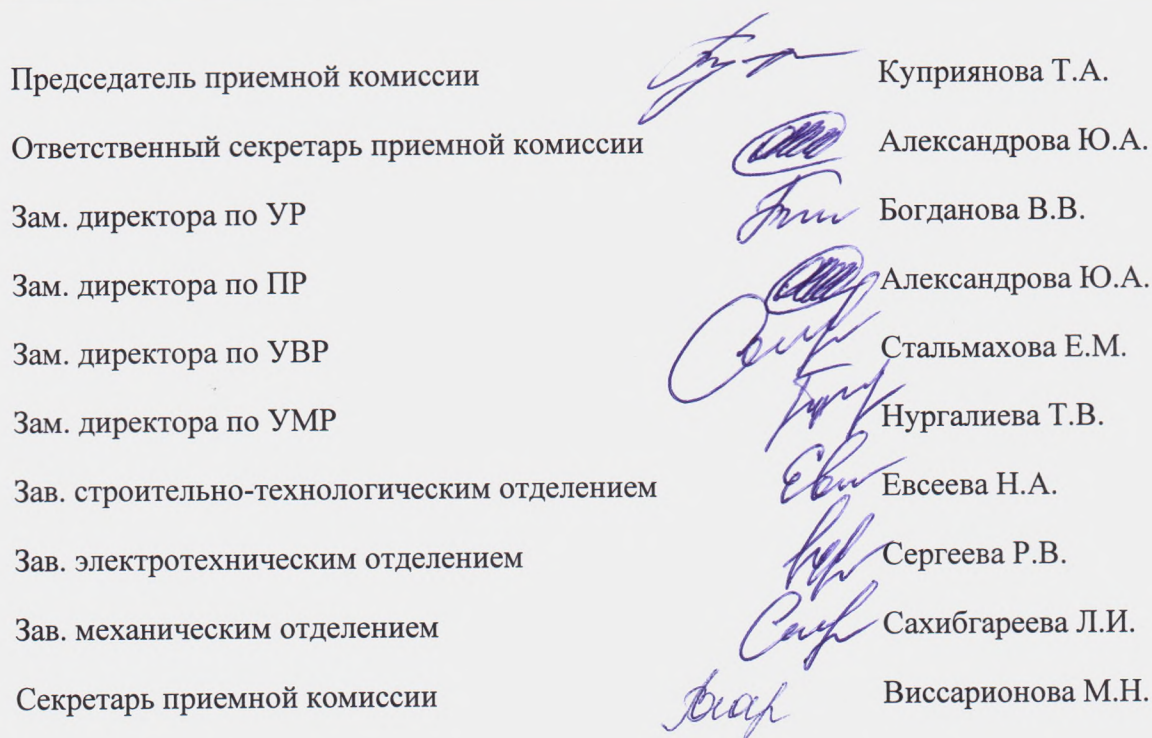 Председатель приемной комиссии Куприянова Т.А.
Ответственный секретарь приемной комиссии Александрова Ю.А.
Зам. директора по УР Богданова В.В.
Зам. директора по ПР Александрова Ю.А.
Зам. директора по УВР Стальмахова Е.М.
Зам. директора по УМР Нургалиева Т.В.
Зав. строительно-технологическим отделением Евсеева Н.А.
Зав. электротехническим отделением Сергеева Р.В.
Зав. механическим отделением Сахибгареева Л.И.
Секретарь приемной комиссии Виссарионова М.Н.